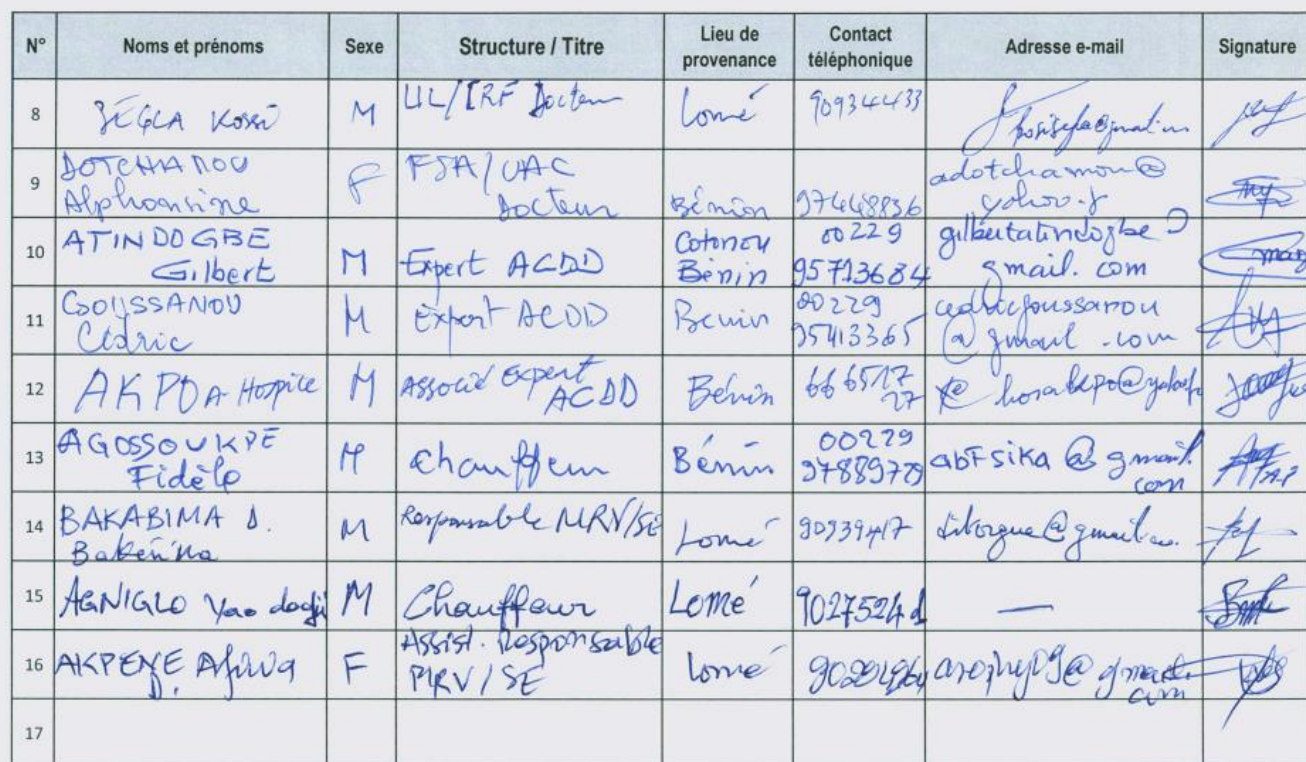 N° Noms et prénoms Sexe Structure / Titre Lieu de provenance Contact téléphonique Adresse e-mail Signature
8 SÉGLA Kossi M UL/IRF Docteur Lomé 90934433
9 DOTCHAMOU Alphonsine F FSA/UAC Docteur Bénin 97448836 adotchamou@
10 ATINDOGBE Gilbert M Expert ACDD Cotonou Bénin 00229 95713684 gilbertatindogbe@ gmail.com
11 GOUSSANOU Cédric M Expert ACDD Benin 00229 95413365 cedricgoussanou @gmail.com
12 AKPO A Hospice M Associé Expert ACDD Bénin 66 65 17 27
13 AGOSSOUKPE Fidèle M Chauffeur Bénin 00229 97889779 abfsika@gmail.com
14 BAKABIMA D. M Responsable MRV/SE Lomé 90939417
15 AGNIGLO Yao dodji M Chauffeur Lomé 90275241 —
16 AKPENE Afiwa D. F Assist. Responsable MRV/SE Lomé
17